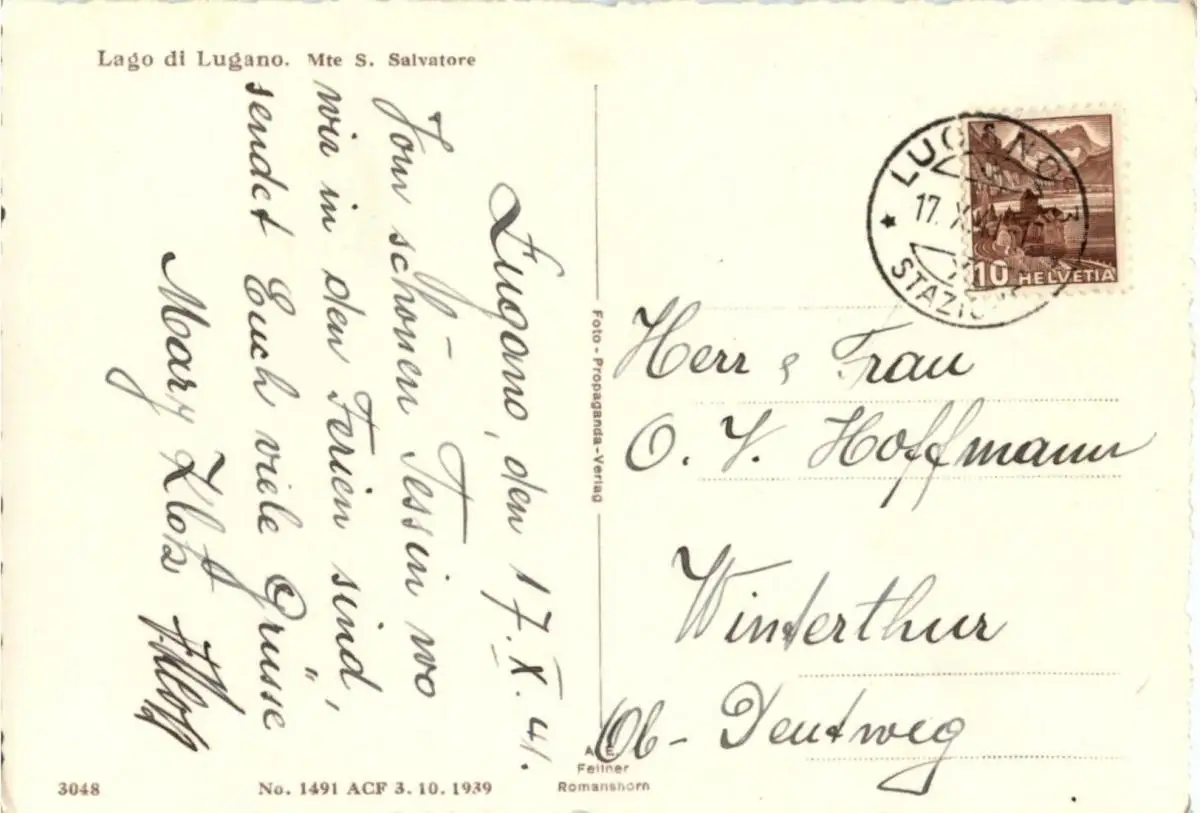 Lago di Lugano. Mte S. Salvatore
Lugano, den 17. X. 41.
Vom schönen Tessin wo
wir in den Ferien sind,
sendet Euch viele Grüsse
Mary Klotz
Foto-Propaganda-Verlag
A. E.
Fellner
Romanshorn
LUGANO 3
17. X.
STAZIO
10 HELVETIA
Herr & Frau
O. V. Hoffmann
Winterthur
Ob-Deutweg
3048
No. 1491 ACF 3. 10. 1939